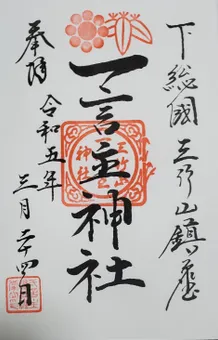 下総國三竹山鎮座
一言主神社
奉拝
令和五年
三月二十四日